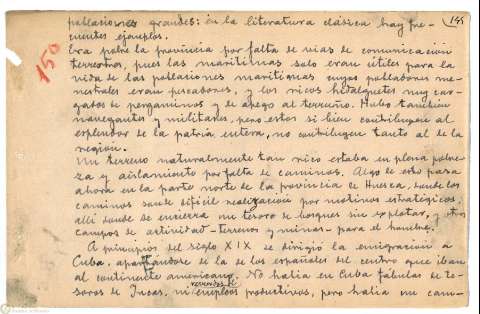 poblaciones grandes: en la literatura clásica hay fre- 145
cuentes ejemplos.
150
Era pobre la provincia por falta de vias de comunicación
terrestres, pues las maritimas solo eran útiles para la
vida de las poblaciones maritimas cuyos pobladores me-
nestrales eran pescadores, y los ricos hidalguetes muy car-
gados de pergaminos y de apego al terruño. Hubo tambien
navegantes y militares, pero estos si bien contribuyen al
esplendor de la patria entera, no contribuyen tanto al de la
región.
Un terreno naturalmente tan rico estaba en plena pobre-
za y aislamiento por falta de caminos. Algo de esto pasa
ahora en la parte norte de la provincia de Huesca, donde los
caminos son de dificil realización por motivos estratégicos,
alli donde se encierra un tesoro de bosques sin explotar, y otros
campos de actividad -terrenos y minas- para el hombre.
A principios del siglo XIX se dirigió la emigración á
Cuba, apartándose de la de los españoles del centro que iban
al continente americano. No habia en Cuba fábulas de te-
soros de Incas, ni empleos productivos, pero habia un cam-